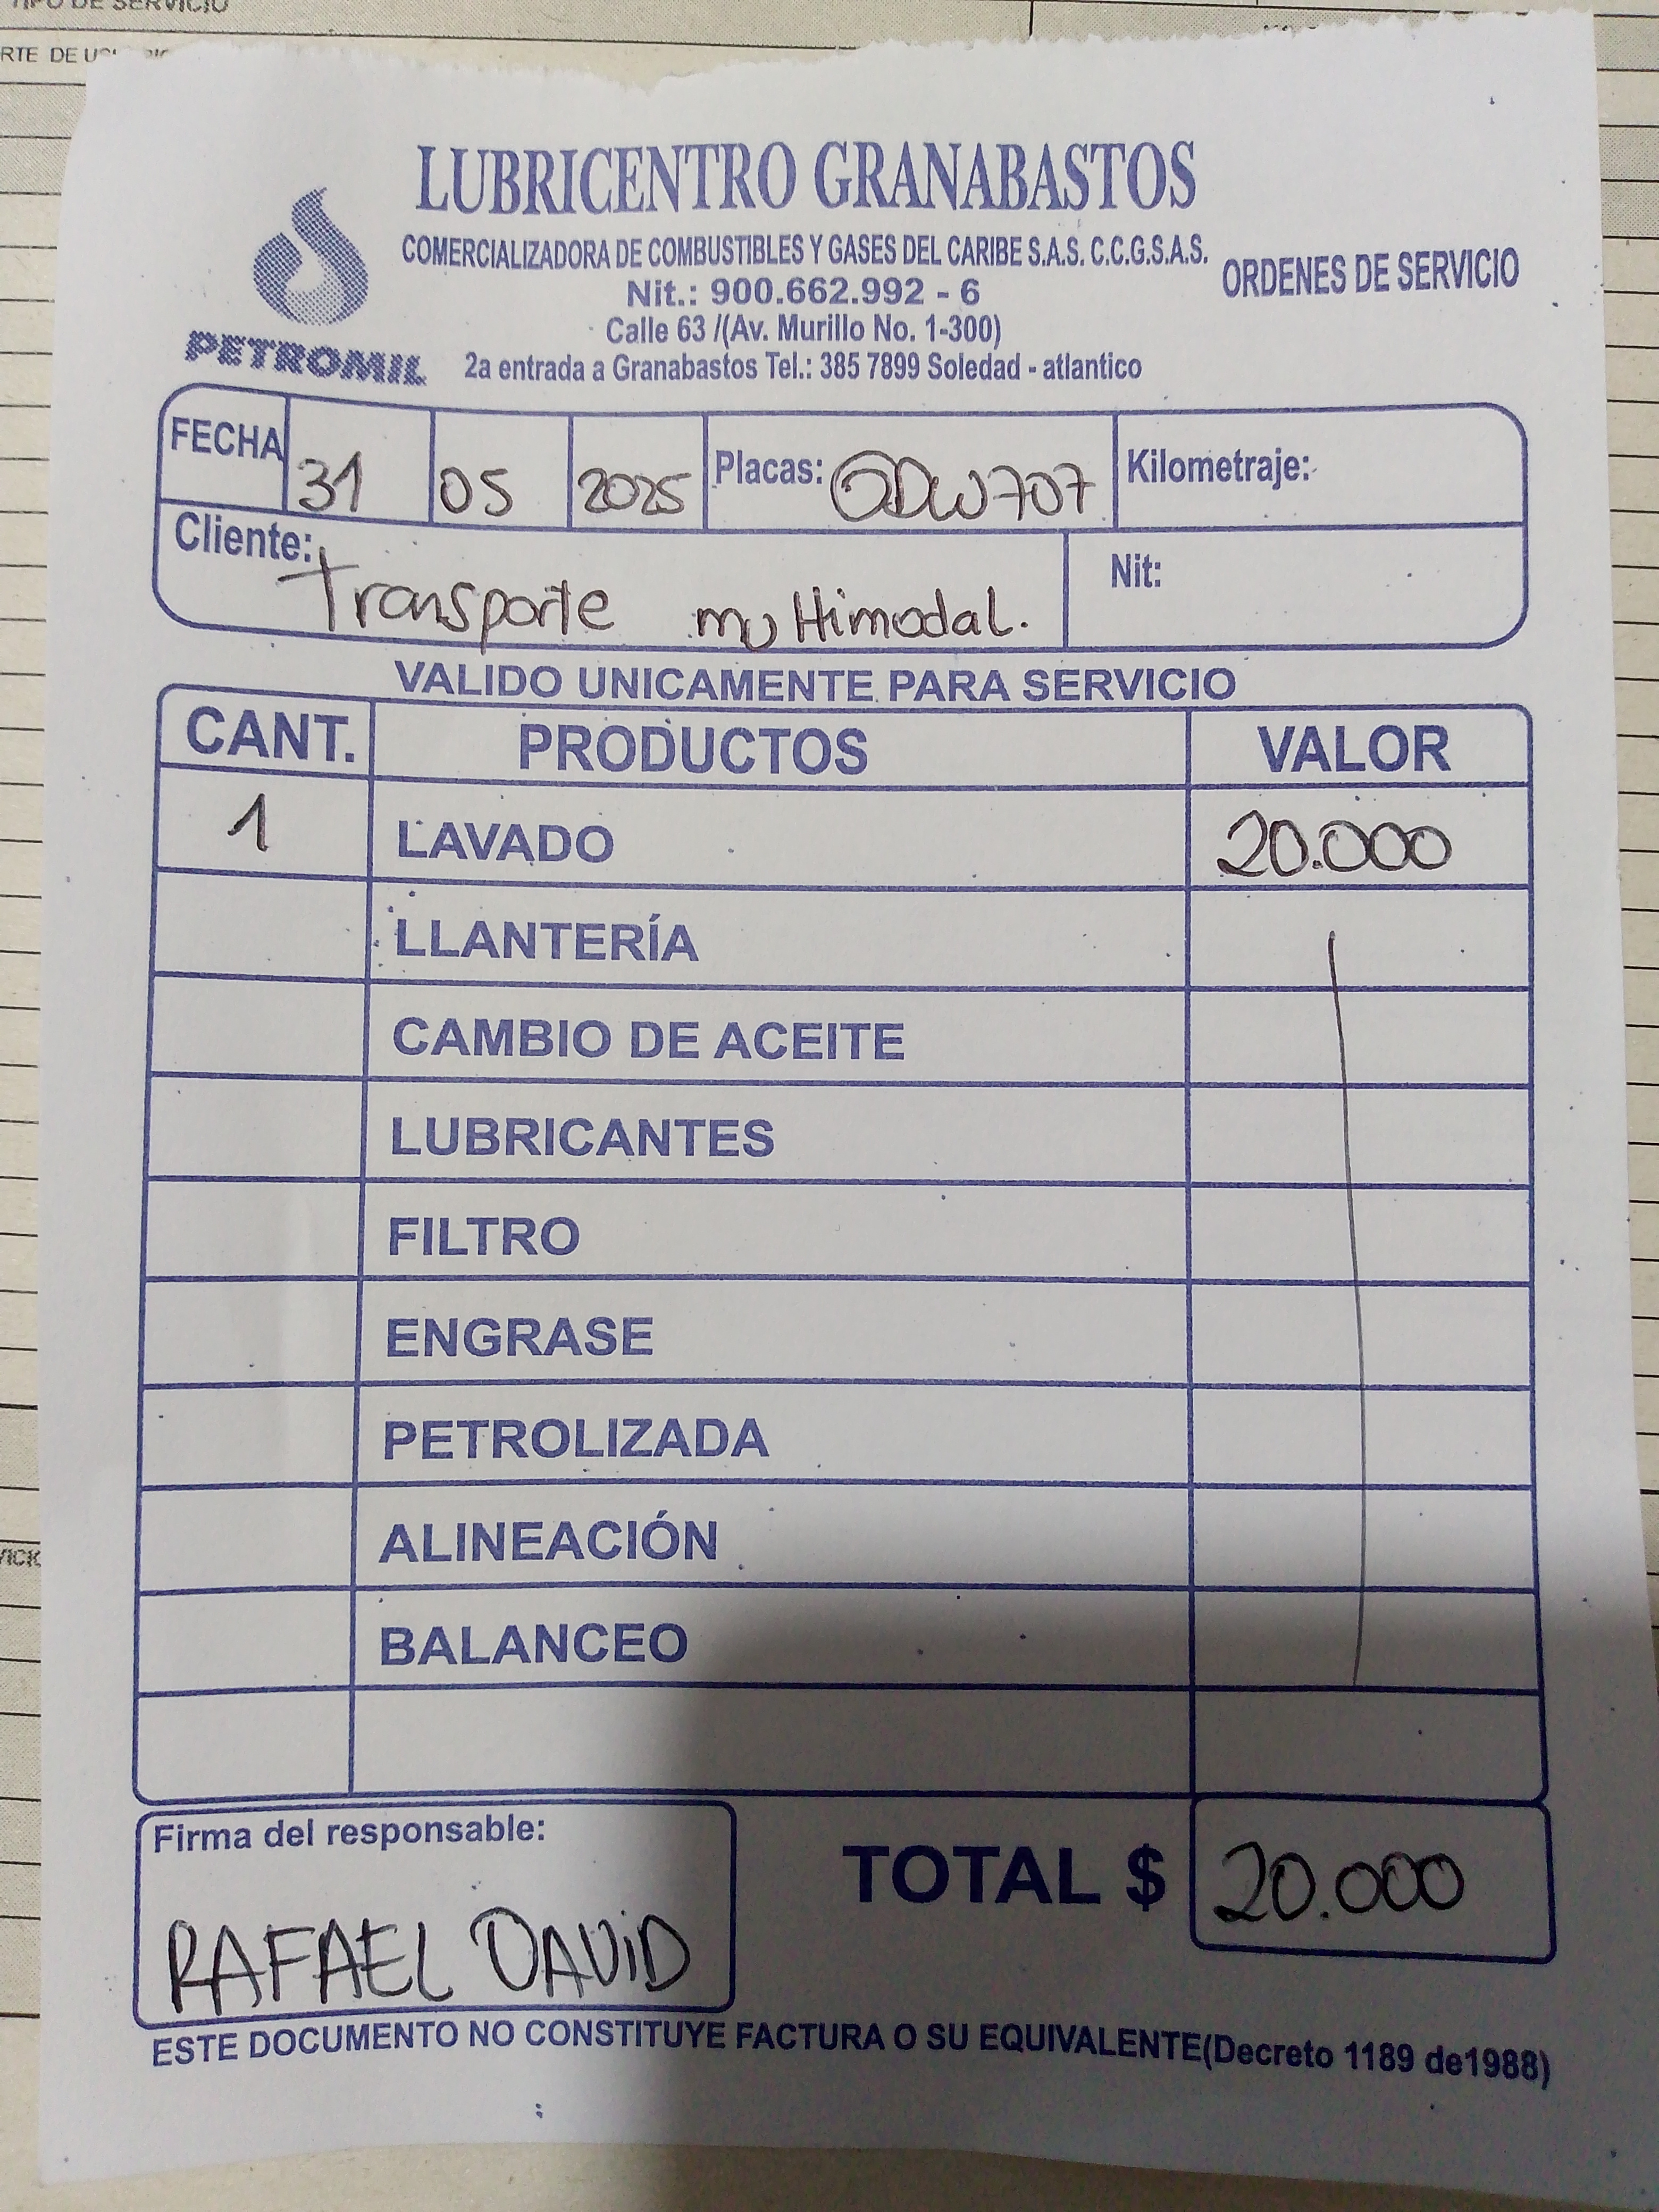 TIPO DE SERVICIO
RTE DE
LUBRICENTRO GRANABASTOS
COMERCIALIZADORA DE COMBUSTIBLES Y GASES DEL CARIBE S.A.S. C.C.G.S.A.S.
ORDENES DE SERVICIO
Nit.: 900.662.992 - 6
Calle 63 /(Av. Murillo No. 1-300)
PETROMIL
2a entrada a Granabastos Tel.: 385 7899 Soledad - atlantico
FECHA 31 05 2025 Placas: QDW707 Kilometraje:
Cliente: Transporte multimodal. Nit:
VALIDO UNICAMENTE PARA SERVICIO
CANT. PRODUCTOS VALOR
1 LAVADO 20.000
LLANTERÍA
CAMBIO DE ACEITE
LUBRICANTES
FILTRO
ENGRASE
PETROLIZADA
ALINEACIÓN
BALANCEO
Firma del responsable:
TOTAL $ 20.000
RAFAEL DAViD
ESTE DOCUMENTO NO CONSTITUYE FACTURA O SU EQUIVALENTE(Decreto 1189 de1988)